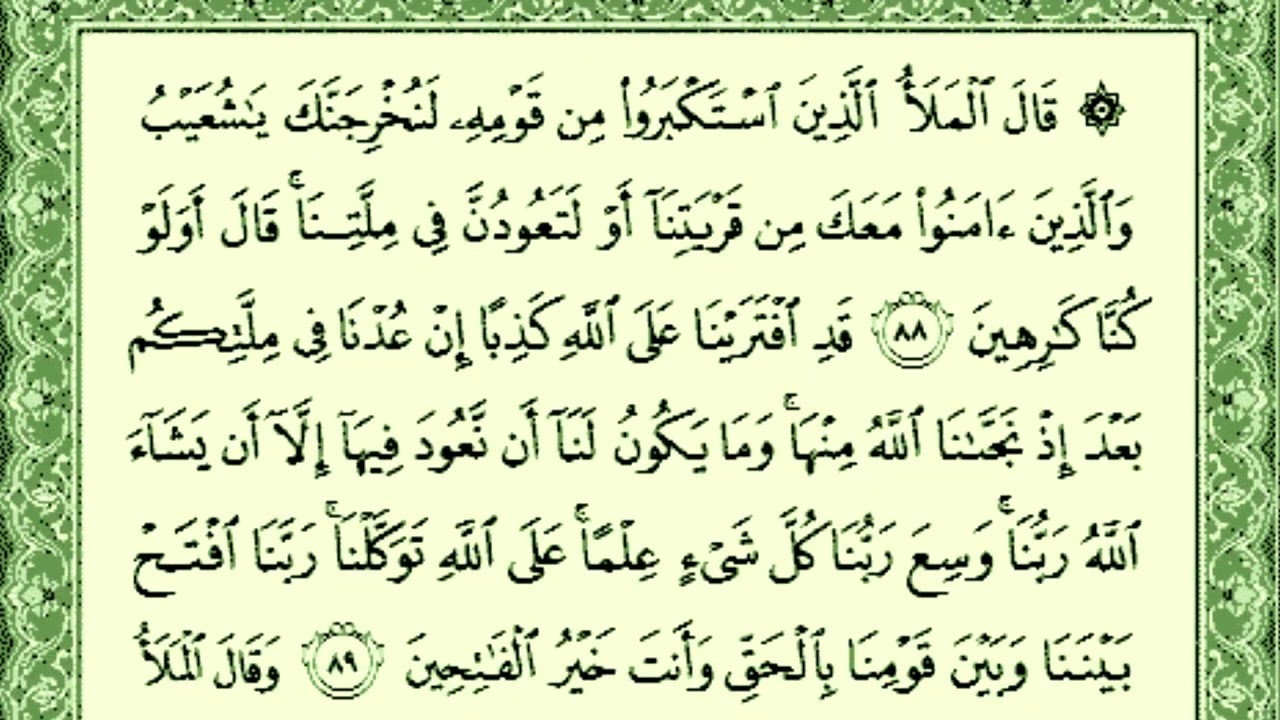 ۞ قَالَ ٱلْمَلَأُ ٱلَّذِينَ ٱسْتَكْبَرُوا۟ مِن قَوْمِهِۦ لَنُخْرِجَنَّكَ يَٰشُعَيْبُ
وَٱلَّذِينَ ءَامَنُوا۟ مَعَكَ مِن قَرْيَتِنَآ أَوْ لَتَعُودُنَّ فِى مِلَّتِنَا ۚ قَالَ أَوَلَوْ
كُنَّا كَٰرِهِينَ ٨٨ قَدِ ٱفْتَرَيْنَا عَلَى ٱللَّهِ كَذِبًا إِنْ عُدْنَا فِى مِلَّتِكُم
بَعْدَ إِذْ نَجَّىٰنَا ٱللَّهُ مِنْهَا ۚ وَمَا يَكُونُ لَنَآ أَن نَّعُودَ فِيهَآ إِلَّآ أَن يَشَآءَ
ٱللَّهُ رَبُّنَا ۚ وَسِعَ رَبُّنَا كُلَّ شَىْءٍ عِلْمًا ۚ عَلَى ٱللَّهِ تَوَكَّلْنَا ۚ رَبَّنَا ٱفْتَحْ
بَيْنَنَا وَبَيْنَ قَوْمِنَا بِٱلْحَقِّ وَأَنتَ خَيْرُ ٱلْفَٰتِحِينَ ٨٩ وَقَالَ ٱلْمَلَأُ